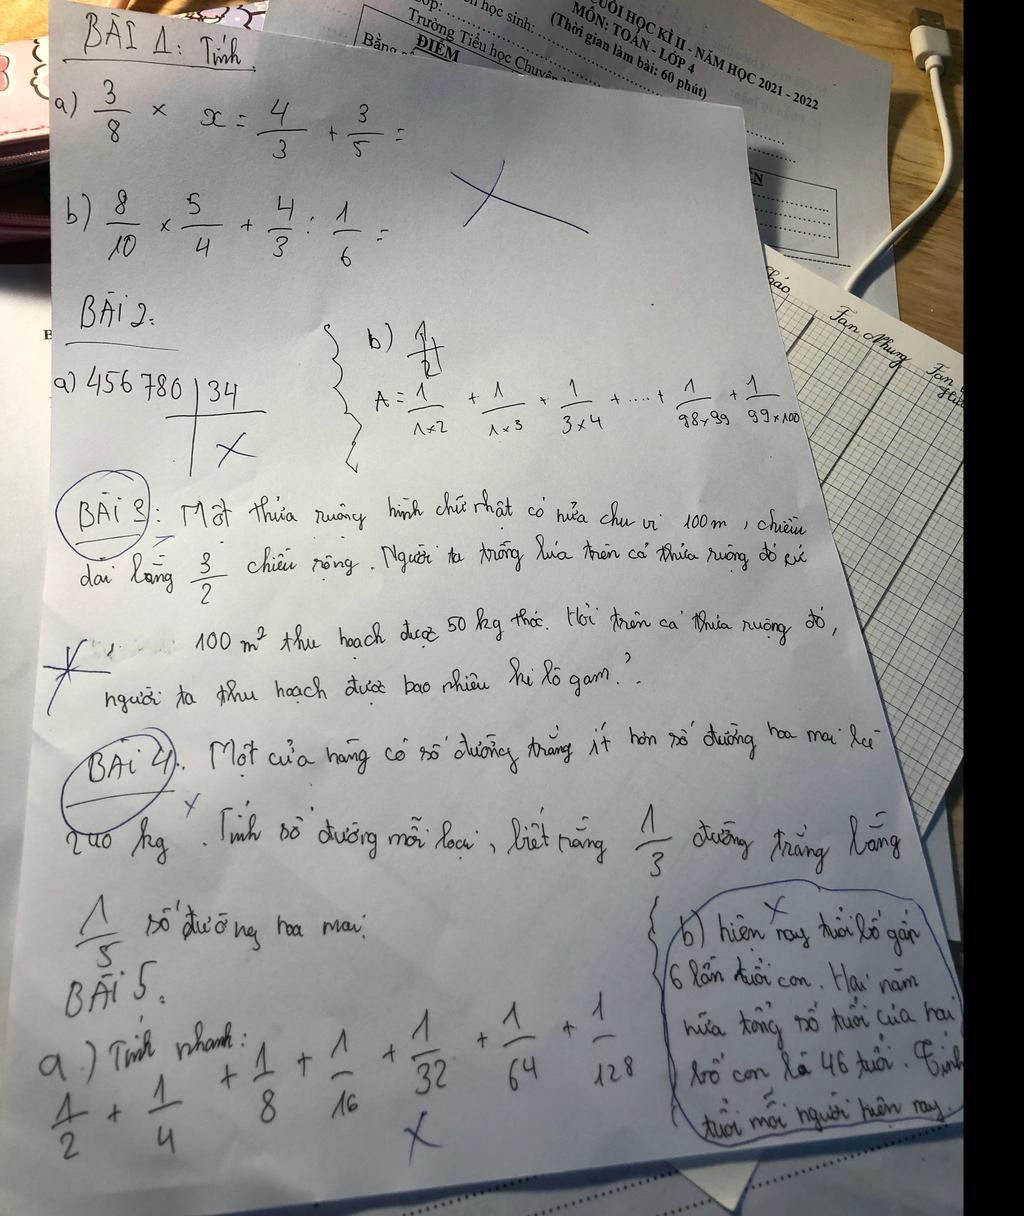 CUỐI HỌC KÌ II - NĂM HỌC 2021 - 2022
MÔN: TOÁN - LỚP 4
(Thời gian làm bài: 60 phút)
học sinh:
Trường Tiểu học Chuyên
ĐIỂM
Bằng
BÀI 1: Tính
a) 3/8 × x = 4/3 + 3/5 =
b) 8/10 × 5/4 + 4/3 : 1/6 =
BÀI 2:
a) 456 780 34
b)
A = 1/1×2 + 1/1×3 + 1/3×4 + .... + 1/98×99 + 1/99×100
BÀI 3: Một thửa ruộng hình chữ nhật có nửa chu vi 100 m, chiều
dai bằng 3/2 chiều rộng. Người ta trồng lúa trên cả thửa ruộng đó cứ
100 m² thu hoạch được 50 kg thóc. Hỏi trên cả thửa ruộng đó,
người ta thu hoạch được bao nhiêu ki lô gam?
BÀI 4. Một cửa hàng có số đường trắng ít hơn số đường hoa mai là
240 kg. Tính số đường mỗi loại, biết rằng 1/3 đường trắng bằng
1/5 số đường hoa mai.
BÀI 5.
a.) Tính nhanh:
1/2 + 1/4 + 1/8 + 1/16 + 1/32 + 1/64 + 1/128
b) hiện nay tuổi bố gấp
6 lần tuổi con. Hai năm
nữa tổng số tuổi của hai
bố con là 46 tuổi. Tính
tuổi mỗi người hiện nay.